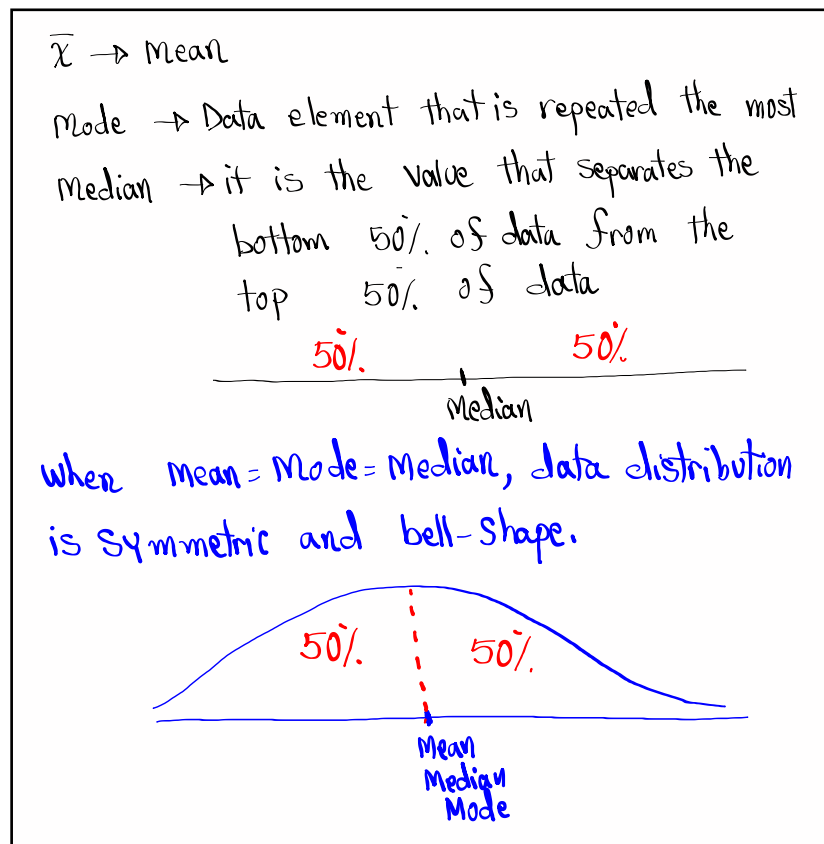 x̄ → Mean
Mode → Data element that is repeated the most
Median → it is the value that separates the
bottom 50% of data from the
top 50% of data
50% 50%
Median
when Mean = Mode = Median, data distribution
is symmetric and bell-shape.
50% 50%
Mean
Median
Mode